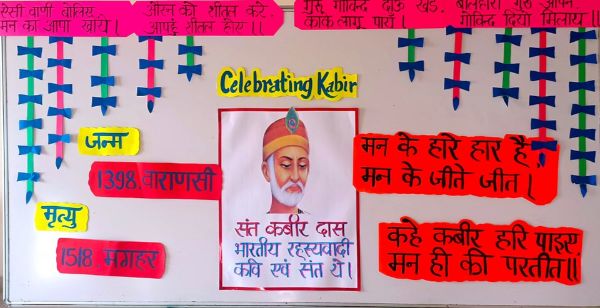 ऐसी वाणी बोलिए,
मन का आपा खोये।
औरन को शीतल करे,
आपहुं शीतल होए।।
गुरू गोविंद दोऊ खड़े,
काके लागू पायँ।
बलिहारी गुरू आपने,
गोविंद दियो मिलाय।।
Celebrating Kabir
जन्म
1398, वाराणसी
मृत्यु
1518 मगहर
संत कबीर दास
भारतीय रहस्यवादी
कवि एवं संत थे।
मन के हारे हार है,
मन के जीते जीत।
कहे कबीर हरि पाइए
मन ही की परतीत।।